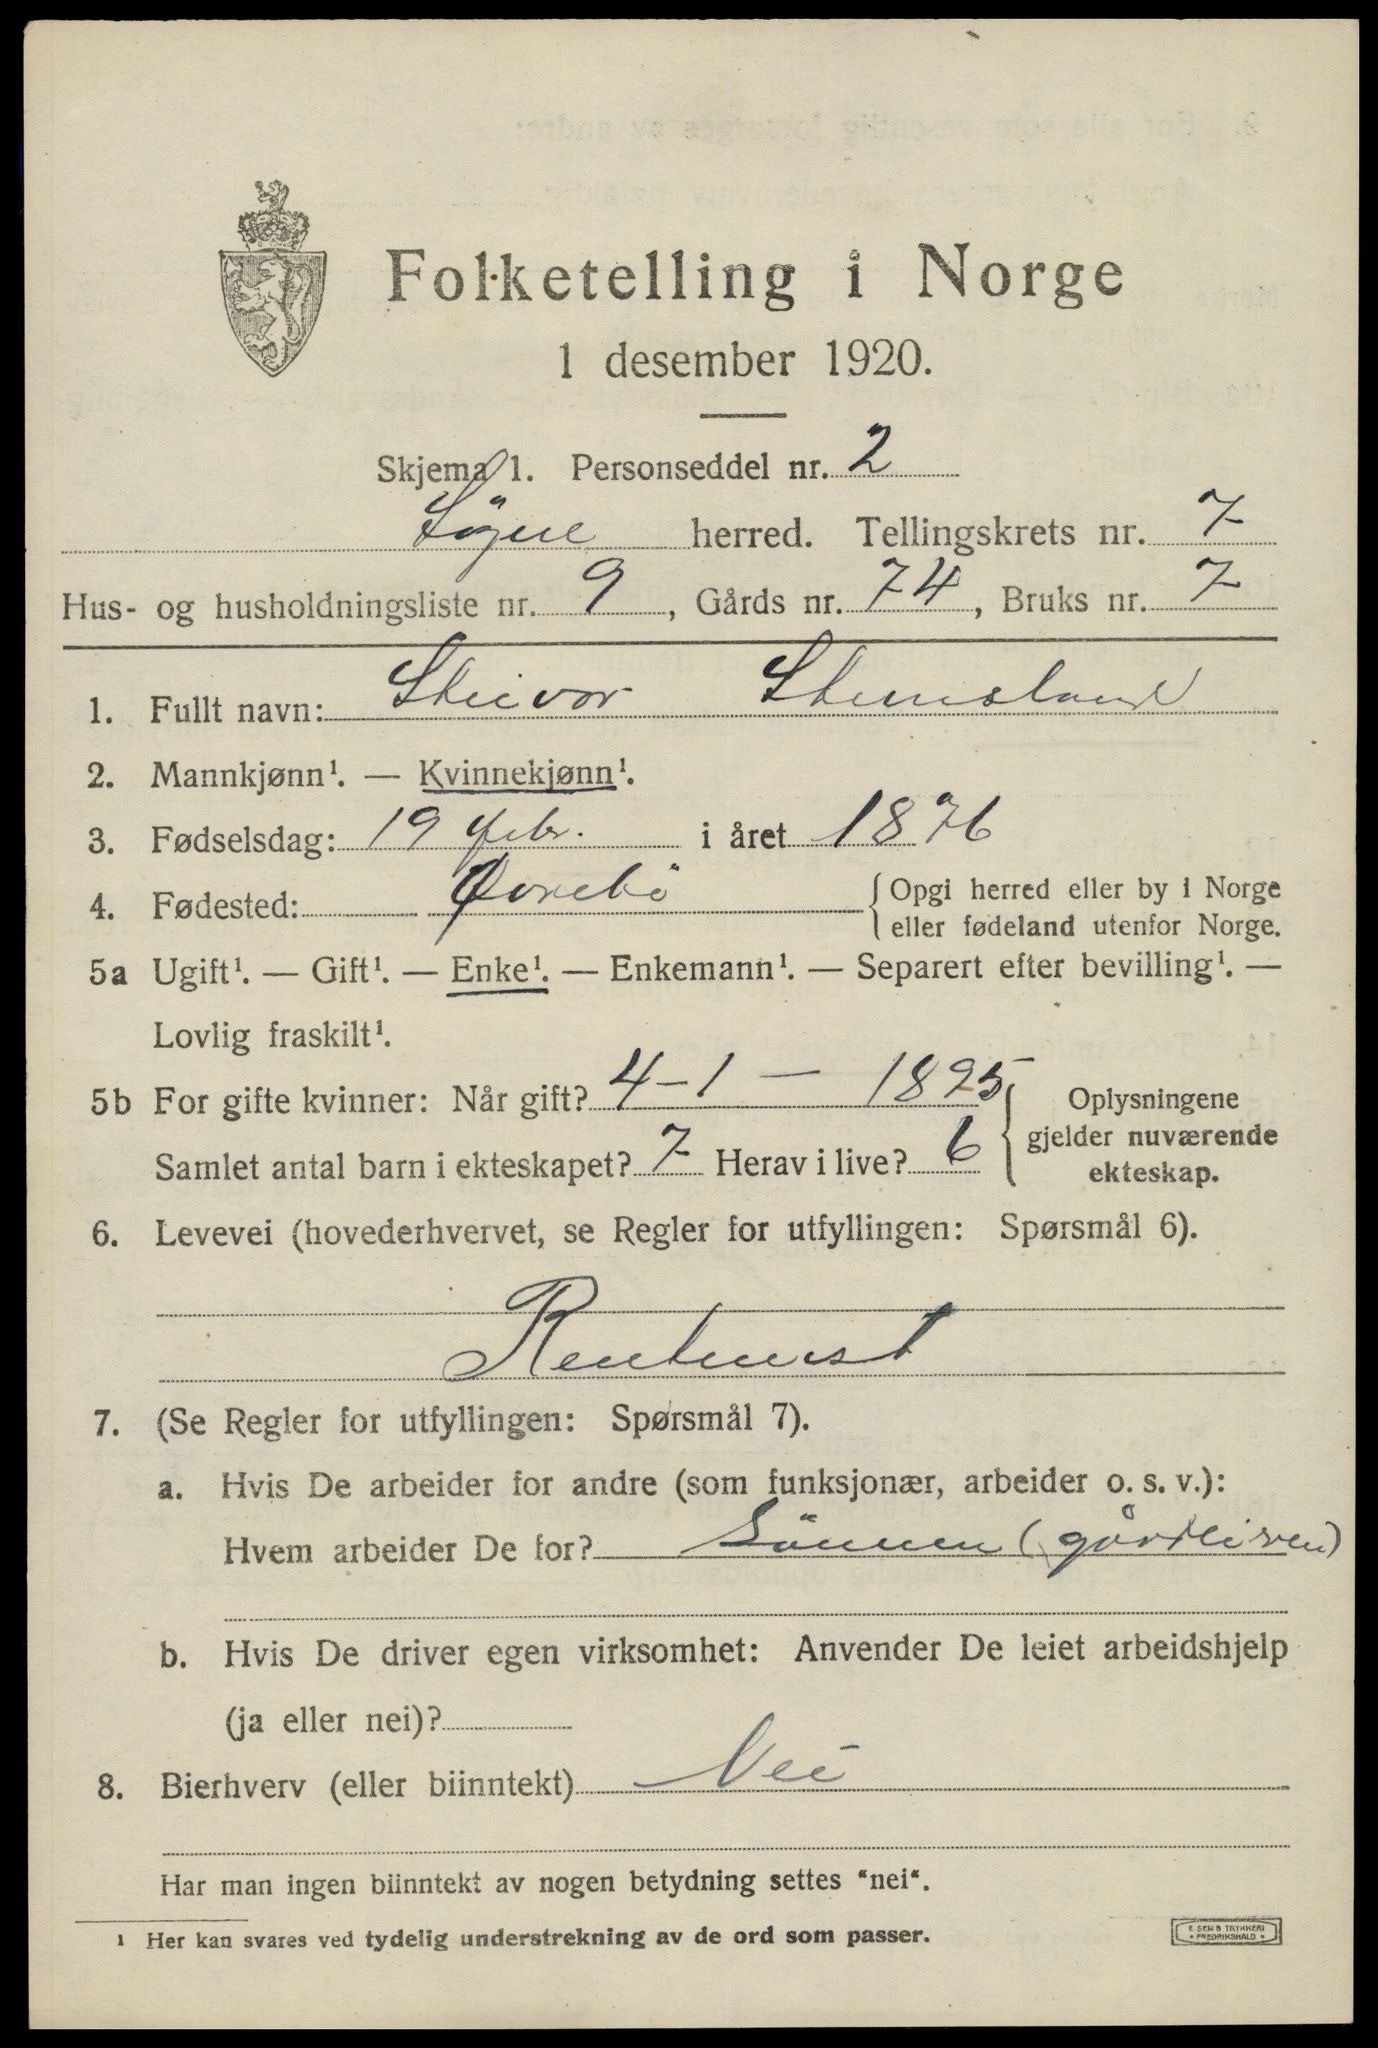 Folketelling i Norge
1 desember 1920.
Skjema 1. Personseddel nr. 2
Søgne herred. Tellingskrets nr. 7
Hus- og husholdningsliste nr. 9, Gårds nr. 74, Bruks nr. 7
1. Fullt navn: Steivor Stemsland
2. Mannkjønn¹. — Kvinnekjønn¹.
3. Fødselsdag: 19 febr. i året 1876
4. Fødested: Øvrebö { Opgi herred eller by i Norge
eller fødeland utenfor Norge.
5a Ugift¹. — Gift¹. — Enke¹. — Enkemann¹. — Separert efter bevilling¹. —
Lovlig fraskilt¹.
5b For gifte kvinner: Når gift? 4-1 — 1895
Samlet antal barn i ekteskapet? 7 Herav i live? 6
{ Oplysningene
gjelder nuværende
ekteskap.
6. Levevei (hovederhvervet, se Regler for utfyllingen: Spørsmål 6).
7. (Se Regler for utfyllingen: Spørsmål 7).
a. Hvis De arbeider for andre (som funksjonær, arbeider o. s. v.):
Hvem arbeider De for? Sönnen
b. Hvis De driver egen virksomhet: Anvender De leiet arbeidshjelp
(ja eller nei)?
8. Bierhverv (eller biinntekt) Nei
Har man ingen biinntekt av nogen betydning settes "nei".
1 Her kan svares ved tydelig understrekning av de ord som passer.
TRYKKERI
FREDRIKSHALD